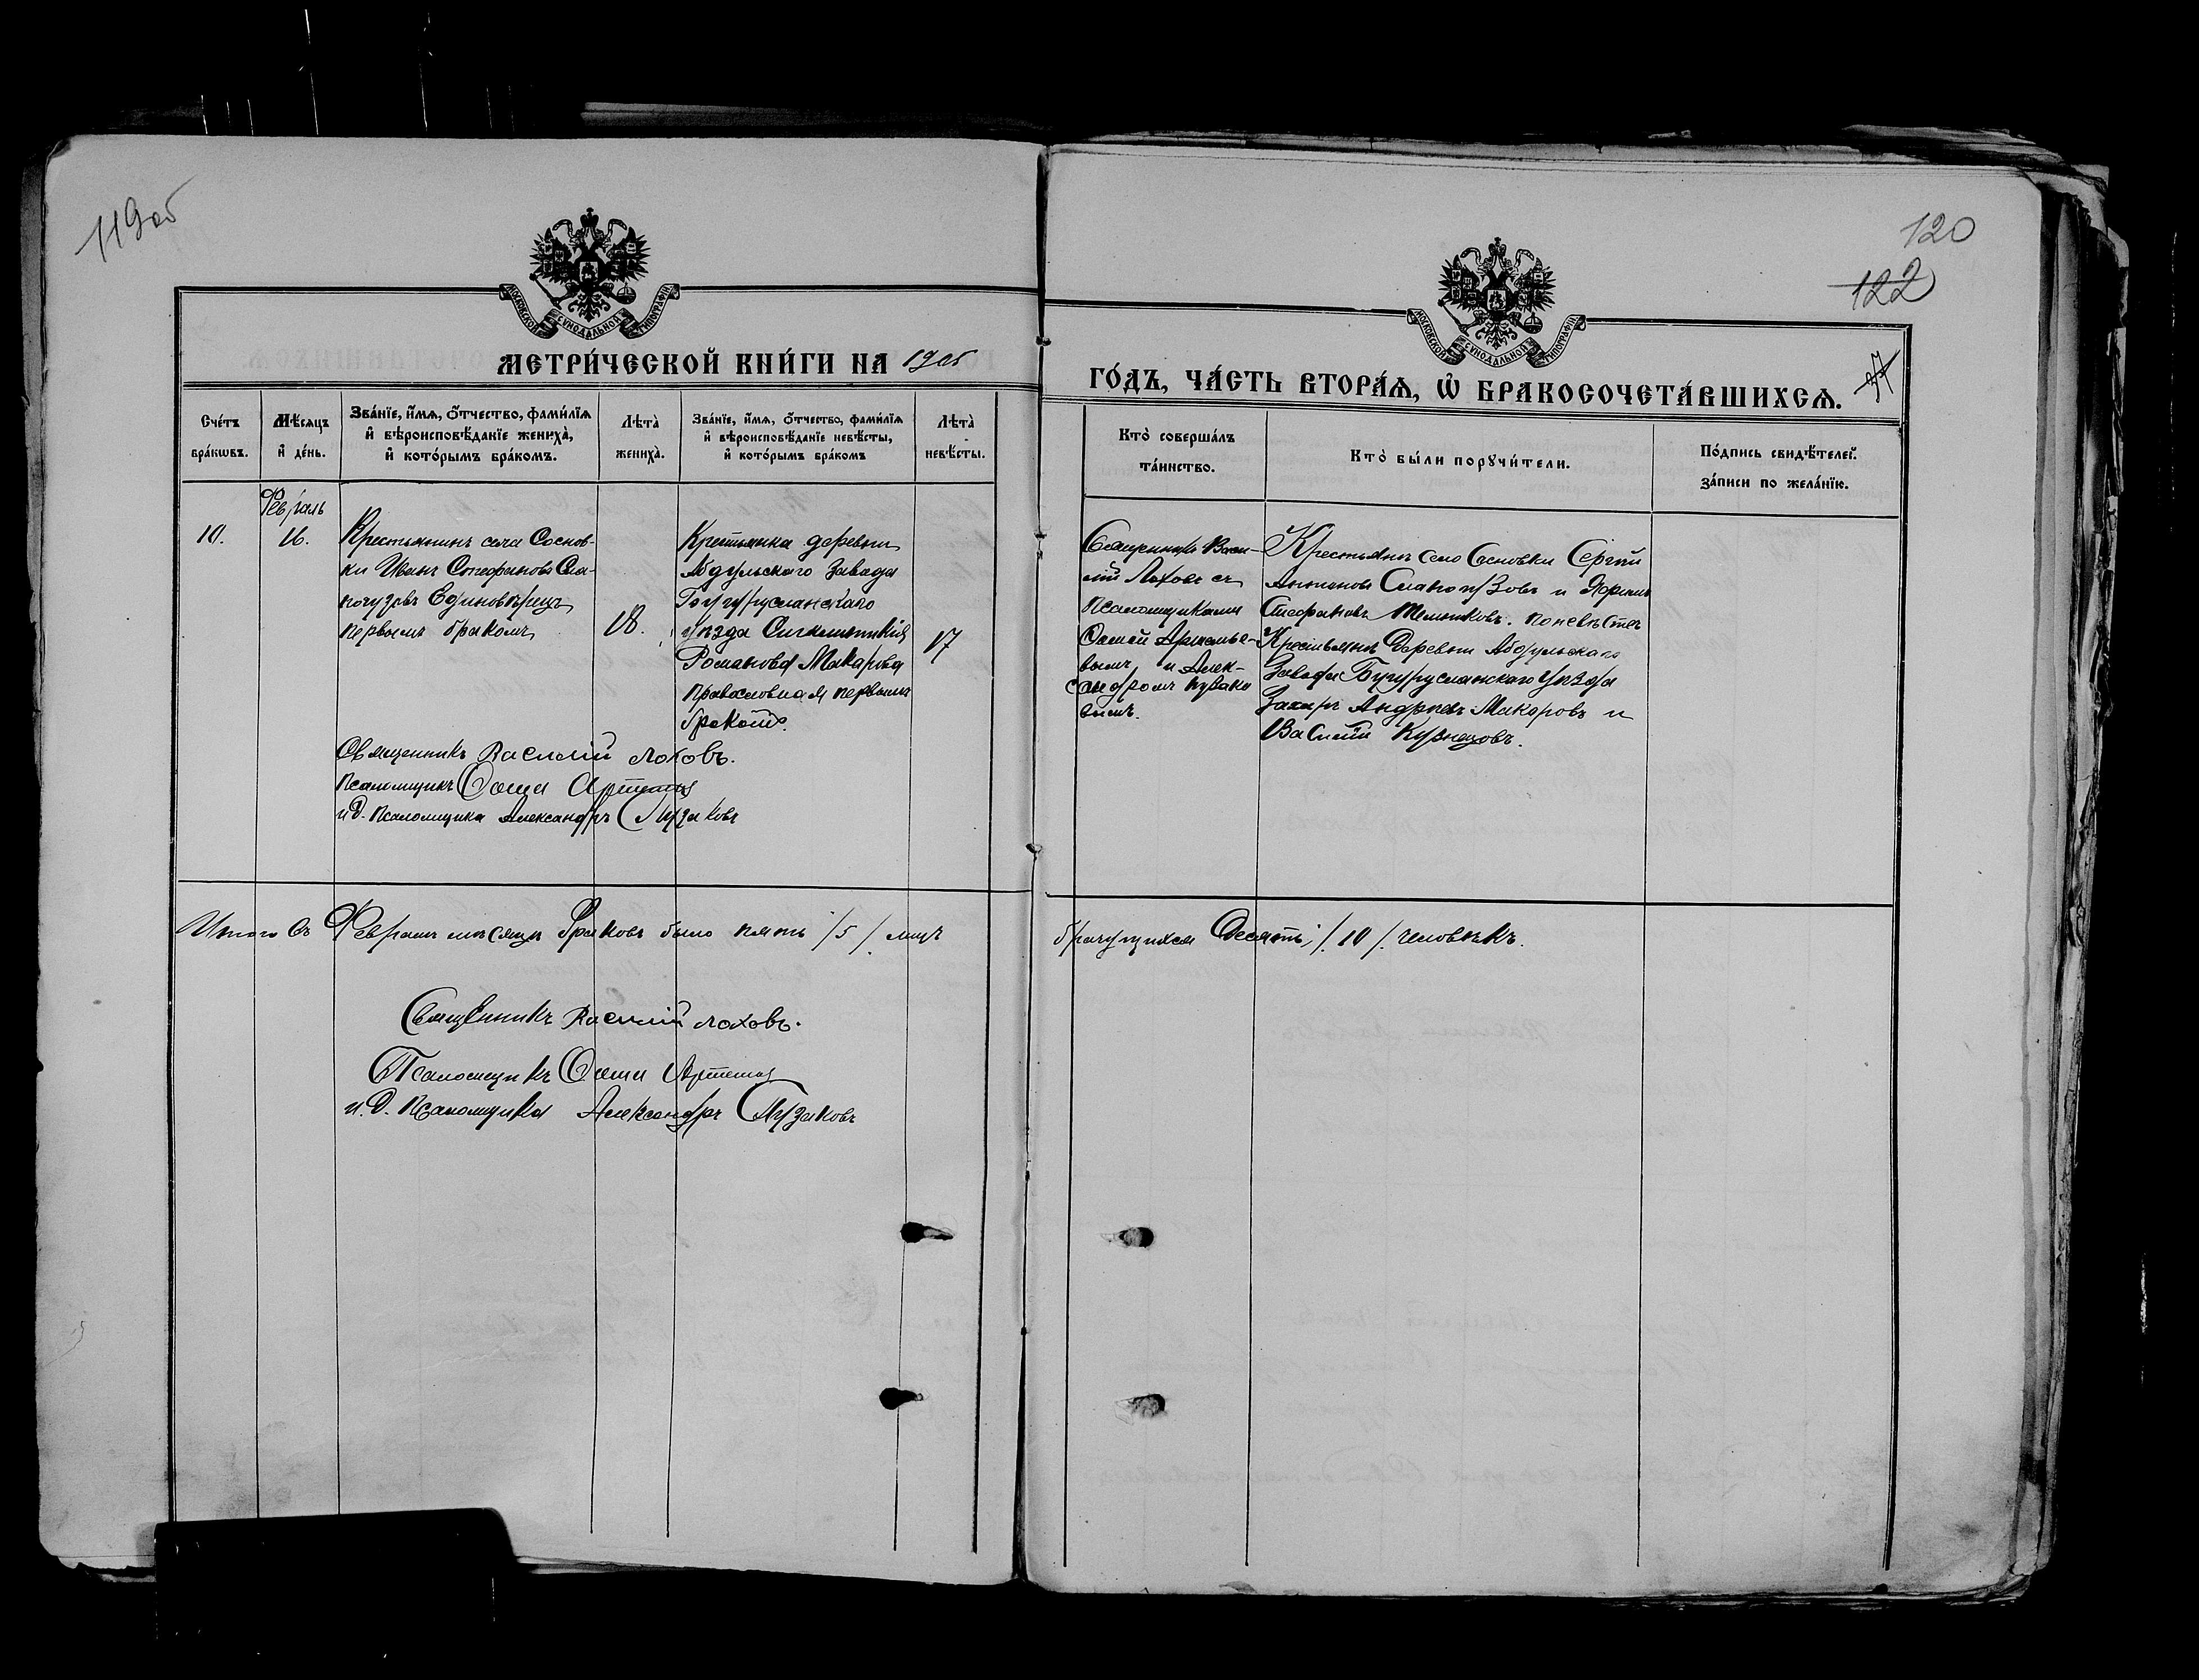 119об
120
122
МОСКОВСКОЙ СѴНОДАЛЬНОЙ ТИПОГРАФІИ
МОСКОВСКОЙ СѴНОДАЛЬНОЙ ТИПОГРАФІИ
МЕТРИ́ЧЕСКОЙ КНИ́ГИ НА
ГО́ДЪ, ЧА́СТЬ ВТОРА́Ѧ, Ѽ БРАКОСОЧЕТА́ВШИХСѦ.
Сче́тъ бра́кѡвъ.
Мѣ́сяцъ и҆ де́нь.
Зва́нїе, и҆́мѧ, ѻ҆́тчество, фами́лїѧ и҆ вѣроисповѣ́данїе жениха̀, и҆ кото́рымъ бра́комъ.
Лѣта̀ жениха̀.
Зва́нїе, и҆́мѧ, ѻ҆́тчество, фами́лїѧ и҆ вѣроисповѣ́данїе невѣ́сты, и҆ кото́рымъ бра́комъ
Лѣта̀ невѣ́сты.
Кто̀ соверша́лъ та́инство.
Кто̀ бы́ли порꙋчи́тели.
По́дпись свидѣ́телей за́писи по жела́нїю.
Февраль
10.
16.
Крестьянинъ села Соснов-
ки Иванъ Стефановъ Сла-
Единовѣрецъ
первымъ бракомъ
18.
Крестьянка деревни
Абдульскаго Завода
Бугурусланскаго
уѣзда
Романова Макарова
православная первымъ
бракомъ.
17
Священникъ Васи-
лій Лоховъ съ
псаломщиками
Артемье-
вымъ и Алек-
сандромъ Пузако
вымъ.
Крестьяне села Сосновки Сергѣй
Антоновъ и
Стефановъ Мельниковъ. по невѣстѣ
Крестьяне Деревни Абдульскаго
Завода Бугурусланскаго Уѣзда
Захаръ Андреевъ Макаровъ и
Василій Кузнецовъ.
Священникъ Василій Лоховъ.
Псаломщикъ
и.д. псаломщика Александръ Пузаковъ
Итого въ Февралѣ мѣсяцѣ браковъ было пять /5/ лицъ
брачущихся Десять /10/ человѣкъ.
Священникъ Василій Лоховъ.
Псаломщикъ
и.д. псаломщика Александръ Пузаковъ